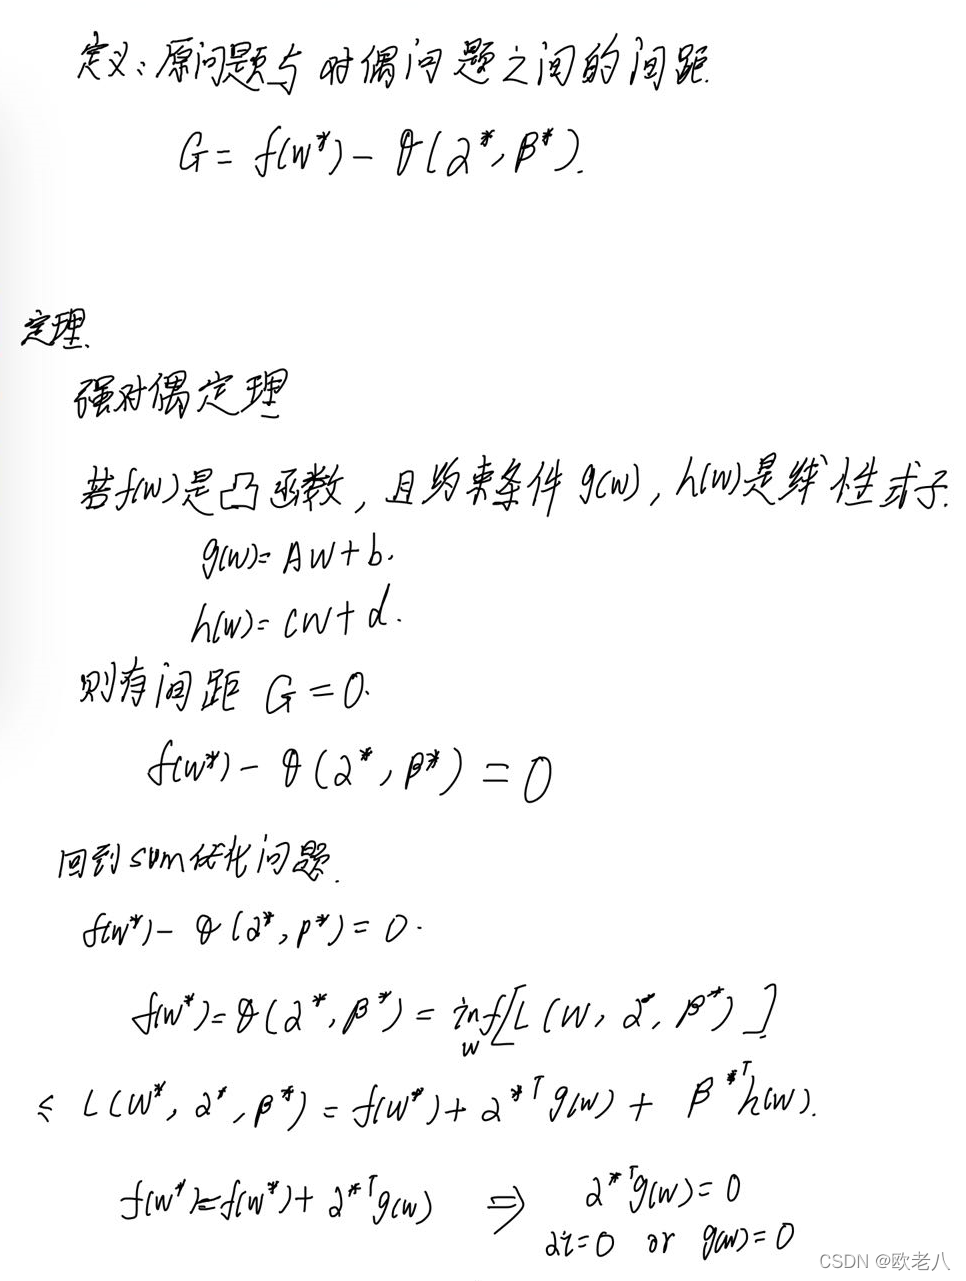 定义:原问题与对偶问题之间的间距.
G = f(w*) - θ(α*, β*).
定理.
强对偶定理
若f(w)是凸函数, 且约束条件 g(w), h(w)是线性式子.
g(w)= Aw+b.
h(w)= cw+d.
则有间距 G=0.
f(w*) - θ(α*, β*) = 0
回到svm优化问题.
f(w*) - θ(α*, β*) = 0.
f(w*) = θ(α*, β*) = inf w [L(w, α*, β*)]
≤ L(w*, α*, β*) = f(w*) + α*ᵀg(w) + β*ᵀh(w).
f(w*)≤f(w*) + α*ᵀg(w) ⇒ α*ᵀg(w)=0
αi=0 or g(w)=0
CSDN @欧老八